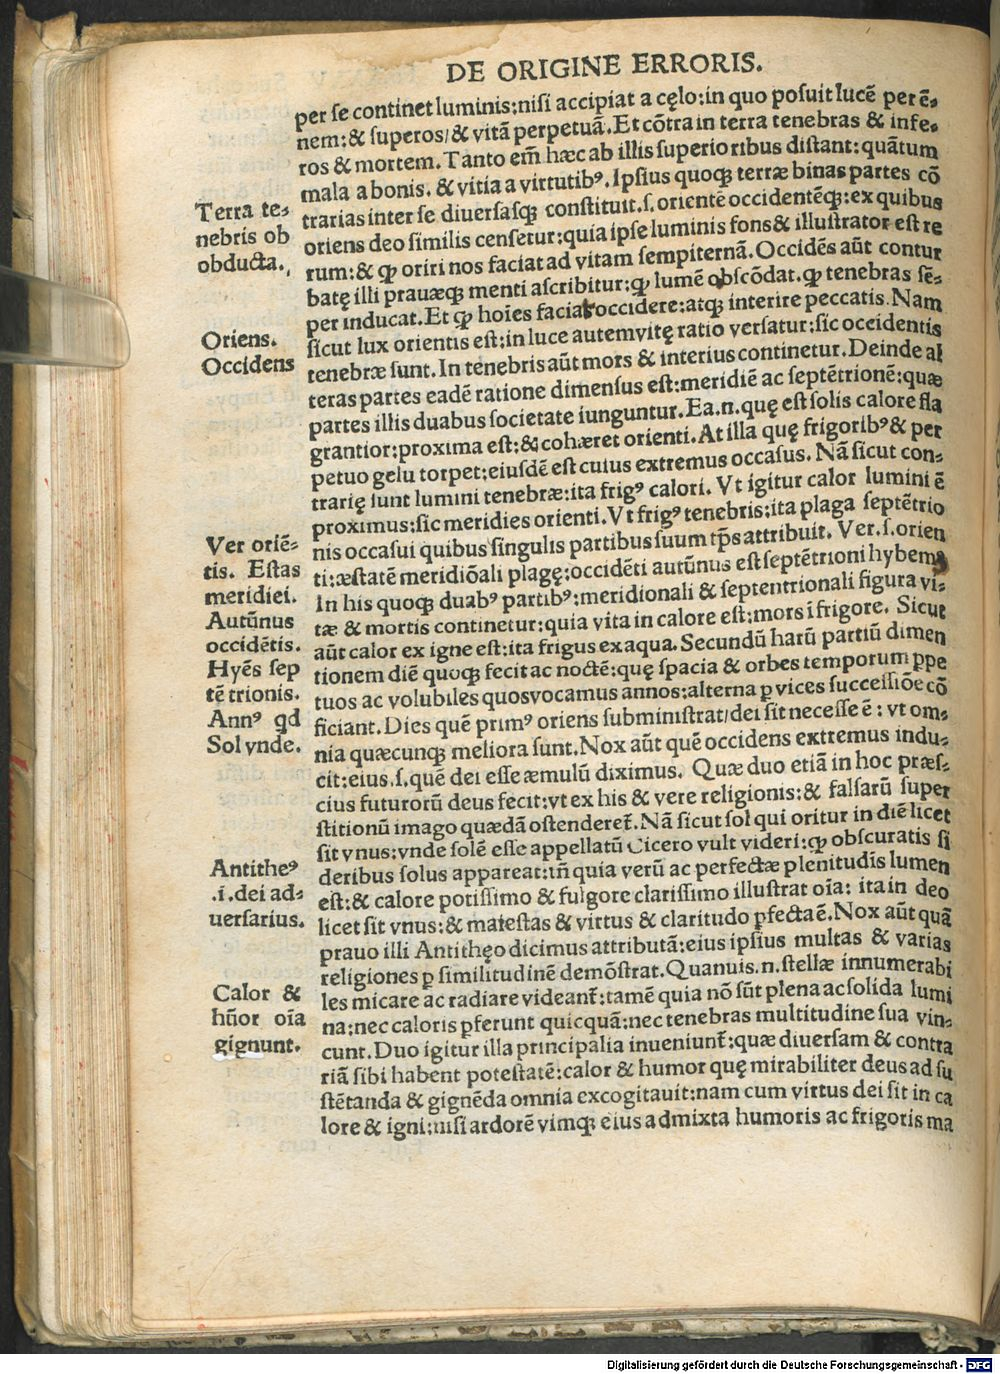 DE ORIGINE ERRORIS.
per se continet luminis:nisi accipiat a cęlo:in quo posuit lucē perē-
nem:& superos/& vitā perpetuā.Et cōtra in terra tenebras & infe-
ros & mortem.Tanto em̄ hæc ab illis superioribus distant:quātum
mala a bonis.& vitia a virtutibꝰ.Ipsius quoqꝫ terræ binas partes cō
Terra te-
nebris ob
obducta.
trarias inter se diuersasqꝫ constituit.s.orientē occidentēqꝫ:ex quibus
oriens deo similis censetur:quia ipse luminis fons& illustrator est re
rum:& ꝙ oriri nos faciat ad vitam sempiternā.Occidēs aūt contur
batę illi prauæqꝫ menti ascribitur:ꝙ lumē obscōdat.ꝙ tenebras sē-
per inducat.Et ꝙ hoīes faciat occidere:atqꝫ interire peccatis.Nam
Oriens.
Occidens
sicut lux orientis est:in luce autem vitę ratio versatur:sic occidentis
tenebræ sunt.In tenebris aūt mors & interius continetur.Deinde al
teras partes eadē ratione dimensus est:meridiē ac septētrionē:quæ
partes illis duabus societate iunguntur.Ea.n.quę est solis calore fla
grantior:proxima est:& cohæret orienti.At illa quę frigoribꝰ& per
petuo gelu torpet:eiusdē est cuius extremus occasus.Nā sicut con-
trarię sunt lumini tenebræ:ita frigꝰ calori.Vt igitur calor lumini ē
proximus:sic meridies orienti.Vt frigꝰ tenebris:ita plaga septētrio
Ver oriē-
tis. Estas
meridiei.
Autūnus
occidētis.
Hyēs sep
tētrionis.
Annꝰ qd
Sol vnde.
nis occasui quibus singulis partibus suum tp̄s attribuit.Ver.s.orien
ti:æstatē meridiōali plagę:occidēti autūnus est septētrioni hybems
In his quoqꝫ duabꝰ partibꝰ:meridionali & septentrionali figura vi-
tæ & mortis continetur:quia vita in calore est:mors ī frigore. Sicut
aūt calor ex igne est:ita frigus ex aqua.Secundū harū partiū dimen
tionem diē quoqꝫ fecit ac noctē:quę spacia & orbes temporum ꝑpe
tuos ac volubiles quos vocamus annos:alterna ꝑ vices successiōe cō
ficiant.Dies quē primꝰ oriens subministrat/dei sit necesse ē: vt om-
nia quæcunqꝫ meliora sunt.Nox aūt quē occidens extremus indu-
cit:eius.s.quē dei esse æmulū diximus. Quæ duo etiā in hoc præs-
cius futurorū deus fecit:vt ex his & vere religionis:& falsarū super
stitionū imago quædā ostenderet̄.Nā sicut sol qui oritur in diē licet
sit vnus:vnde solē esse appellatū Cicero vult videri:ꝙ obscuratis si
Antitheꝰ
.i.dei ad-
uersarius.
deribus solus appareat:in̄ quia verū ac perfectæ plenitudis lumen
est:& calore potissimo & fulgore clarissimo illustrat oīa: ita in deo
licet sit vnus:& maiestas & virtus & claritudo ꝑfecta ē.Nox aūt quā
prauo illi Antithęo dicimus attributā:eius ipsius multas & varias
religiones ꝑ similitudinē demōstrat.Quanuis.n.stellæ innumerabi
Calor &
hūor oīa
gignunt.
les micare ac radiare videant̄:tamē quia nō sūt plena ac solida lumi
na:nec caloris ꝓferunt quicquā:nec tenebras multitudine sua vin-
cunt.Duo igitur illa principalia inueniunt̄:quæ diuersam & contra
riā sibi habent potestatē:calor & humor quę mirabiliter deus ad su
stētanda & gignēda omnia excogitauit:nam cum virtus dei sit in ca
lore & igni:nisi ardorē vimqꝫ eius admixta humoris ac frigoris ma
Digitalisierung gefördert durch die Deutsche Forschungsgemeinschaft - DFG